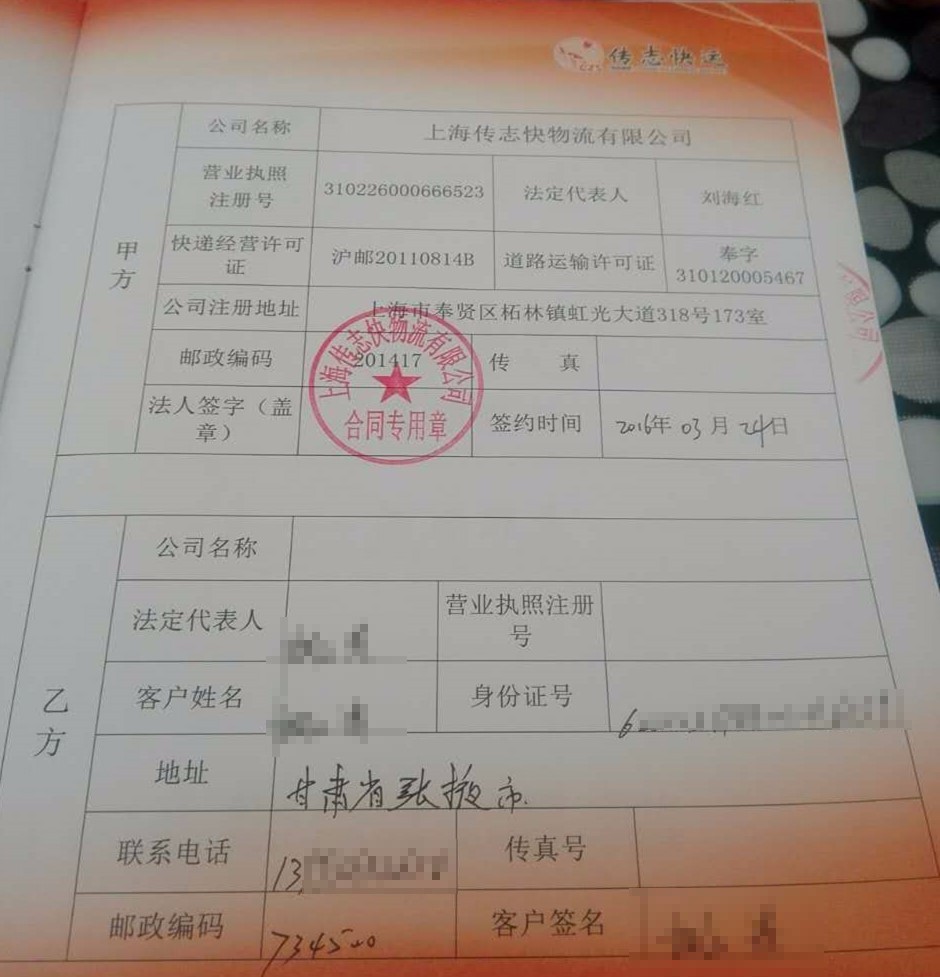 传志快运
甲方
公司名称 上海传志快物流有限公司
营业执照注册号 310226000666523 法定代表人 刘海红
快递经营许可证 沪邮20110814B 道路运输许可证 奉字310120005467
公司注册地址 上海市奉贤区柘林镇虹光大道318号173室
邮政编码 201417 传真
法人签字（盖章） 签约时间 2016年03月24日
上海传志快物流有限公司
合同专用章
限公司
乙方
公司名称
法定代表人 营业执照注册号
客户姓名 身份证号 6
地址 甘肃省张掖市.
联系电话 13 传真号
邮政编码 734500 客户签名